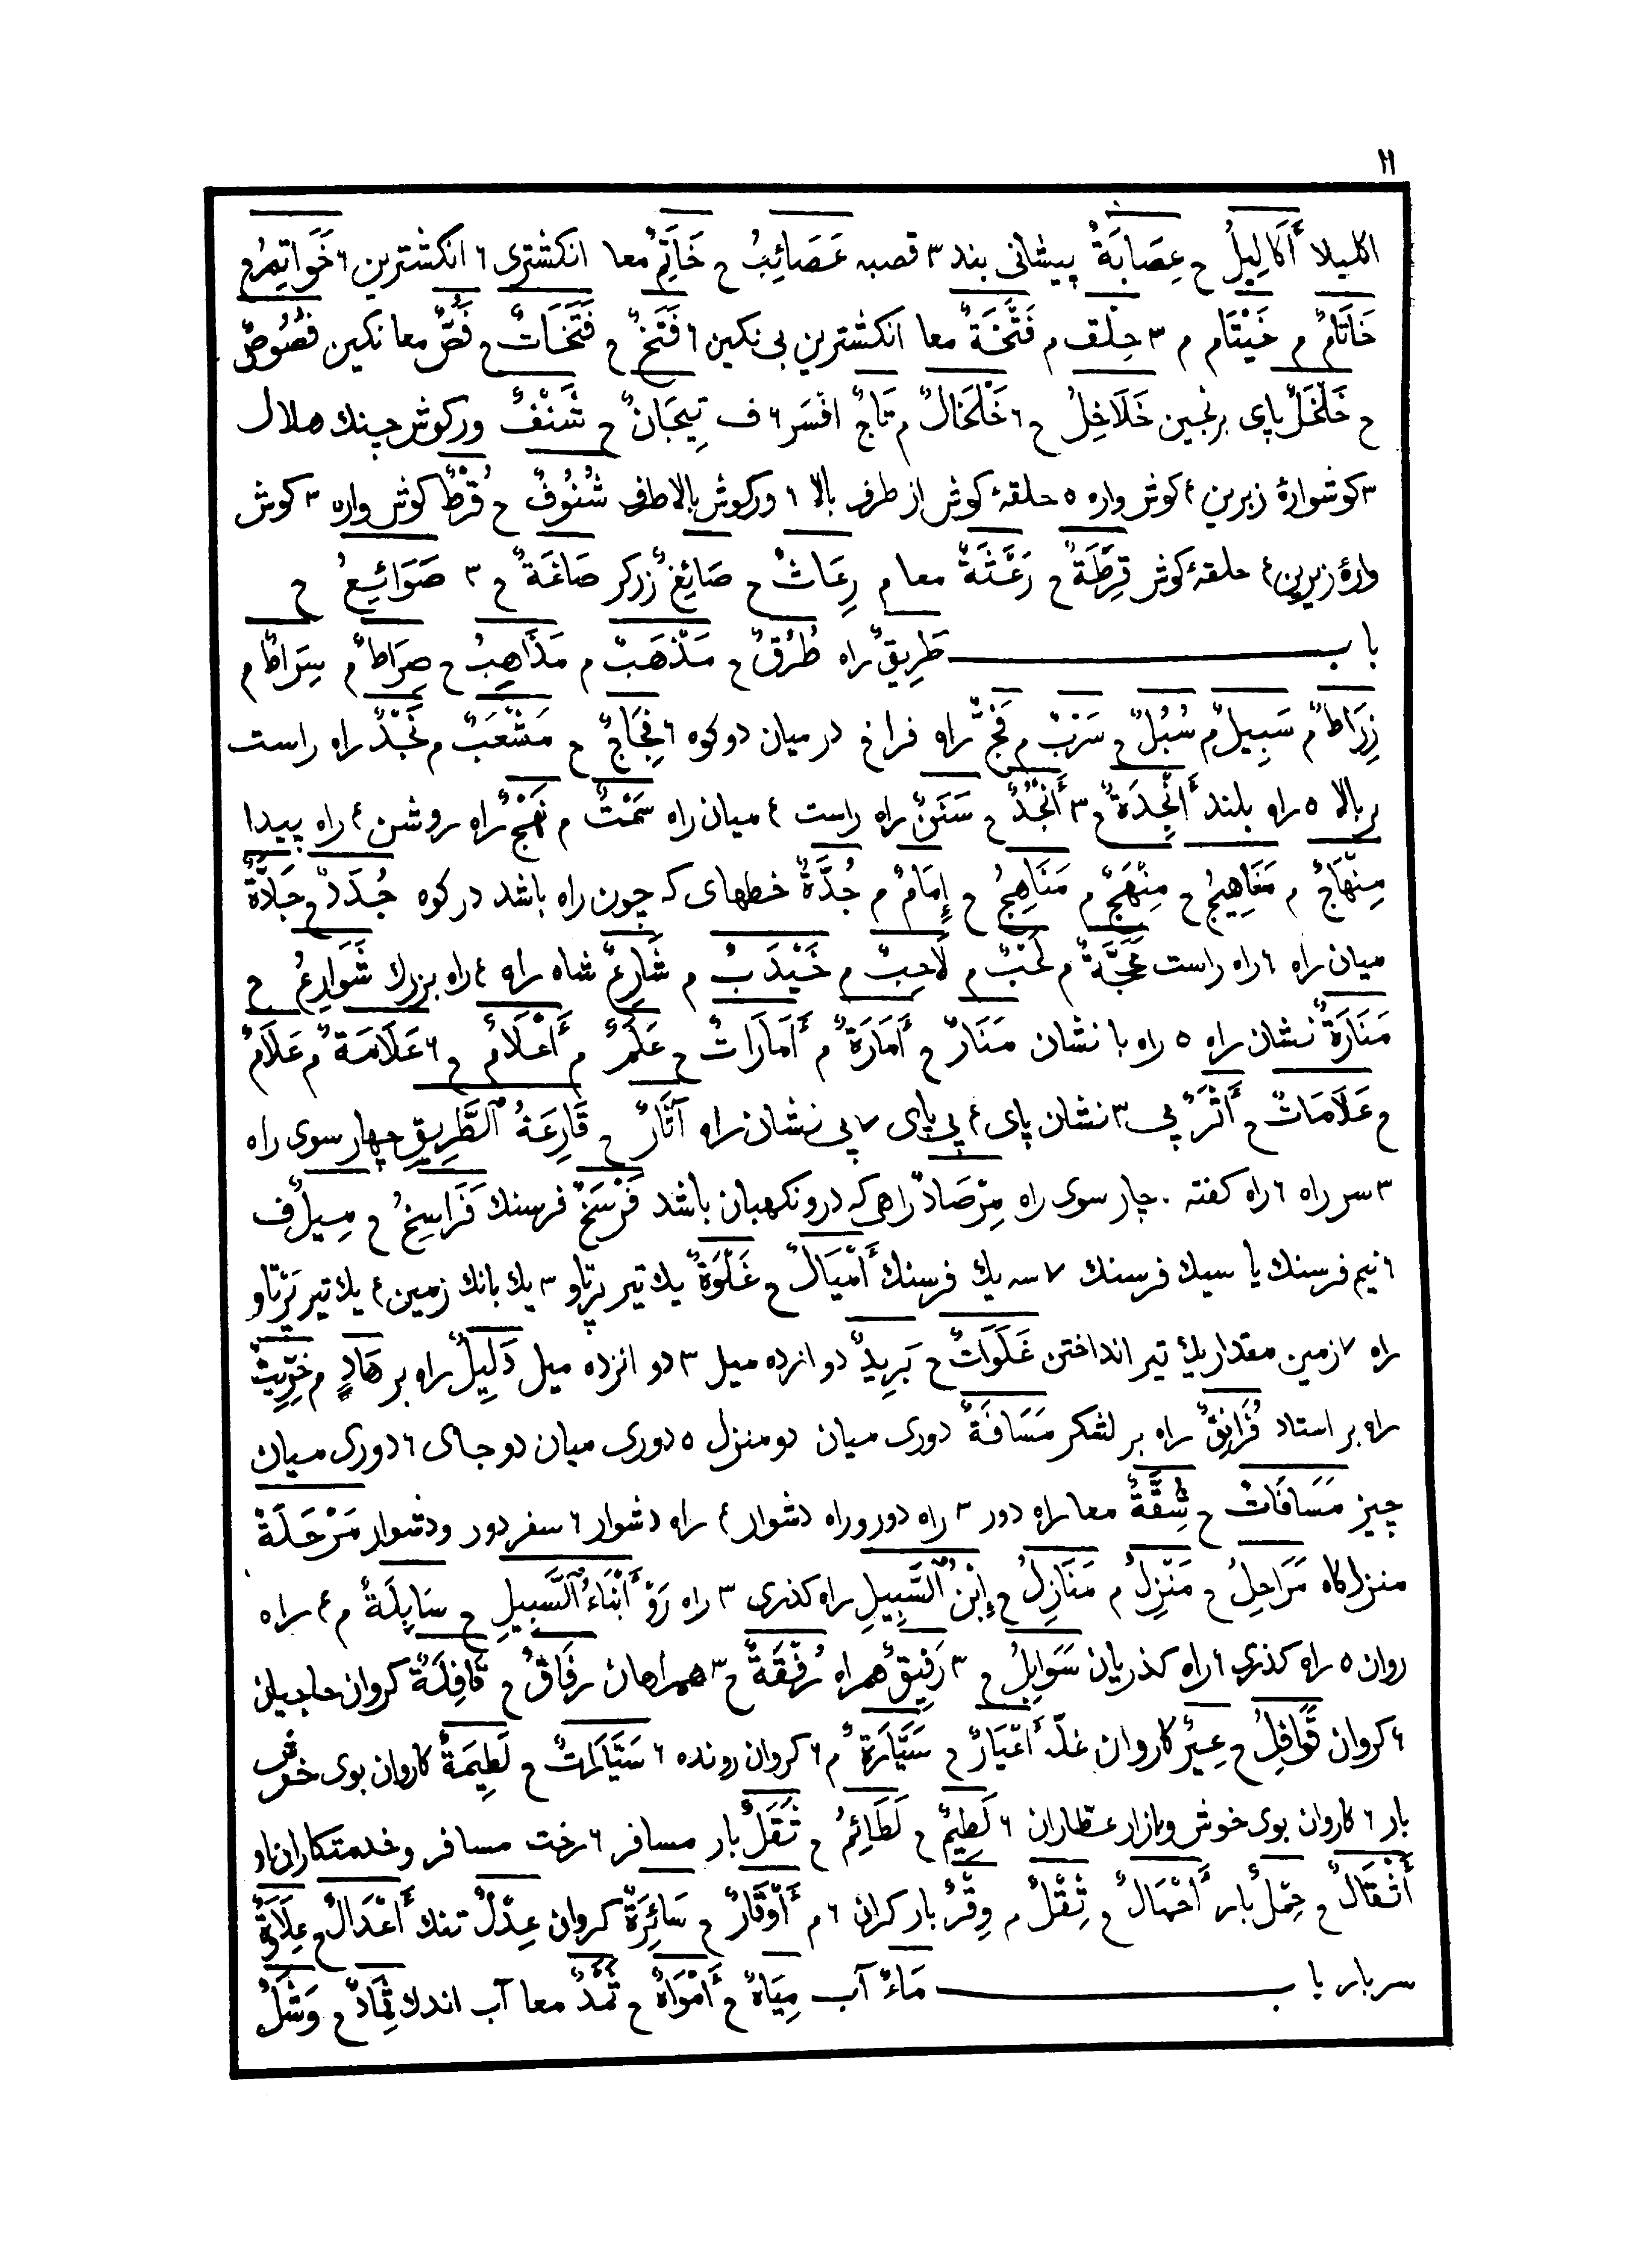 ۱۱
اکلیلا أَكَالِيلُ ح عِصَابَةٌ پیشانی بند ۳ قصبه عَصَائِبُ ح خَاتِمٌ معا انکشتری ۶ انکشترین ۶ خَوَاتِمُ ح
خَاتَامٌ م خَيْتَام م ۳ حِلْق م فَتْخَةٌ معا انکشترین بی نکین ۶ فَتَخٌ ح فَتَخَاتٌ ح فَصٌّ معا نکین فُصُوصٌ
ح خَلْخَلٌ پای برنجین خَلَاخِلُ ح ۶ خَلْخَالٌ م تَاجٌ افْسَر ۶ ف تِيجَانٌ ح شَنْفٌ ورکوش چپنك هلال
۳ کوشوارهٔ زبرین ۴ کوش واره ۵ حلقهٔ کوش از طرف بالا ۶ ورکوش بالا طرف شُنُوفٌ ح قُرْطٌ کوش واره ۳ کوش
وارهٔ زیرین ۴ حلقهٔ کوش قِرَطَةٌ ح رَعْثَةٌ معا م رِعَاثٌ ح صَائِغٌ زرکر صَاغَةٌ ح ۳ صَوَائِغُ ح
باب طَرِيقٌ راه طُرُقٌ ح مَذْهَبٌ م مَذَاهِبُ ح صِرَاطٌ م سِرَاطٌ م
زِرَاطٌ م سَبِيلٌ م سُبُلٌ ح سَرْبٌ م فَجٌّ راه فراخ در میان دو کوه ۶ فِجَاجٌ ح مَشْعَبٌ م نَجْدٌ راه راست
بر بالا ۵ راه بلند أَنْجِدَةٌ ح ۳ أَنْجُدٌ ح سَنَنٌ راه راست ۴ میان راه سَمْتٌ م نَهْجٌ راه روشن ۴ راه پیدا
مِنْهَاجٌ م مَنَاهِيجُ ح مِنْهَجٌ م مَنَاهِجُ ح إِمَامٌ م جُدَّةٌ خطهای که چون راه باشد در کوه جُدَدٌ ح جَادَّةٌ
میان راه ۶ راه راست مَحَجَّةٌ م لَحْبٌ م لَاحِبٌ م خَيْدَبٌ م شَارِعٌ شاه راه ۴ راه بزرك شَوَارِعُ ح
مَنَارَةٌ نشان راه ۵ راه با نشان مَنَارٌ ح أَمَارَةٌ م أَمَارَاتٌ ح عَلَمٌ م أَعْلَامٌ ح ۶ عَلَامَةٌ م عَلَامٌ
ح عَلَامَاتٌ ح أَثَرٌ پی ۳ نشان پای ۴ پی پای ۷ پی نشان راه آثَارٌ ح قَارِعَةُ الطَّرِيقِ چهار سوی راه
۳ سر راه ۶ راه کفته . چار سوی راه مِرْصَادٌ راهی که درو نکهبان باشد فَرْسَخٌ فرسنك فَرَاسِخُ ح مِيلٌ ف
۶ نیم فرسنك یا سیك فرسنك ۷ سه یك فرسنك أَمْيَالٌ ح غَلْوَةٌ یك تیر پرتاو ۳ یك بانك زمین ۴ یك تیر پرتاو
راه ۷ زمین مقدار یك تیر انداختن غَلَوَاتٌ ح بَرِيدٌ دوازده میل ۳ دو انزده میل دَلِيلٌ راه بر هَادٍ م خِرِّيتٌ
راه بر استاد فُرَانِقٌ راه بر لشکر مَسَافَةٌ دوری میان دو منزل ۵ دوری میان دو جای ۶ دوری میان
چیز مَسَافَاتٌ ح شُقَّةٌ معا راه دور ۳ راه دور وراه دشوار ۴ راه دشوار ۶ سفر دور و دشوار مَرْحَلَةٌ
منزل کاه مَرَاحِلُ ح مَنْزِلٌ م مَنَازِلُ ح إِبْنُ السَّبِيلِ راه کذری ۳ راه رَوْ أَبْنَاءُ السَّبِيلِ ح سَابِلَةٌ م ۴ راه
روان ۵ راه کذری ۶ راه کذریان سَوَابِلُ ح ۳ رَفِيقٌ همراه رُفْقَةٌ ح ۳ همراهان رِفَاقٌ ح قَافِلَةٌ کروان حاجیان
۶ کروان قَوَافِلُ ح عِيرٌ کاروان غلّه أَعْيَارٌ ح سَيَّارَةٌ م ۶ کروان رونده ۶ سَيَّارَاتٌ ح لَطِيمَةٌ کاروان بوی خوش
بار ۶ کاروان بوی خوش و بازار عطّاران ۶ لَطِيمٌ ح لَطَائِمُ ح ثَقَلٌ بار مسافر ۶ رخت مسافر و خدمتکاران او
أَثْقَالٌ ح حِمْلٌ بار أَحْمَالٌ ح ثِقْلٌ م وِقْرٌ بار کران ۶ م أَوْقَارٌ ح سَائِرَةٌ کروان عِدْلٌ تنك أَعْدَالٌ ح عِلَاوَةٌ
سر بار باب مَاءٌ آب مِيَاهٌ ح أَمْوَاهٌ ح ثَمَدٌ معا آب اندك ثِمَادٌ ح وَشَلٌ